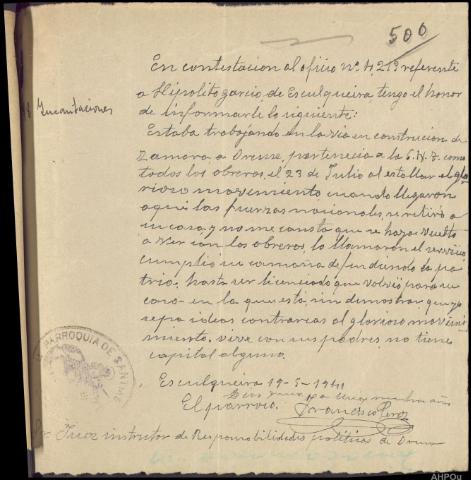 500
En contestacion al oficio nº 4.219 referente
Incautaciones
a Hipolito garcia, de Esculqueira tengo el honor
de informarle lo siguiente:
Estaba trabajando en la via en construcion de
Zamora a Orense, pertenecia a la C.N.T. como
todos los obreros, el 23 de Julio al estallar el glo
rioso movimiento cuando llegaron
aqui las fuerzas nacionales se retiró a
su casa, y no me consta que se haya vuelto
a ver con los obreros, lo llamaron al servicio
cumplió su campaña defendiendo la pa
tria, hasta ser licenciado que volvió para su
casa en la que está, sin demostrar que yo
sepa ideas contrarias al glorioso movi
miento, vive con sus padres no tiene
capital alguno.
PARROQUIA DE
Esculqueira 19-5-1941
Dios guarde a Ud muchos años
El parroco. Francisco Perez
Sr. Juez instructor de Responsabilidades politicas de Orense
AHPOu